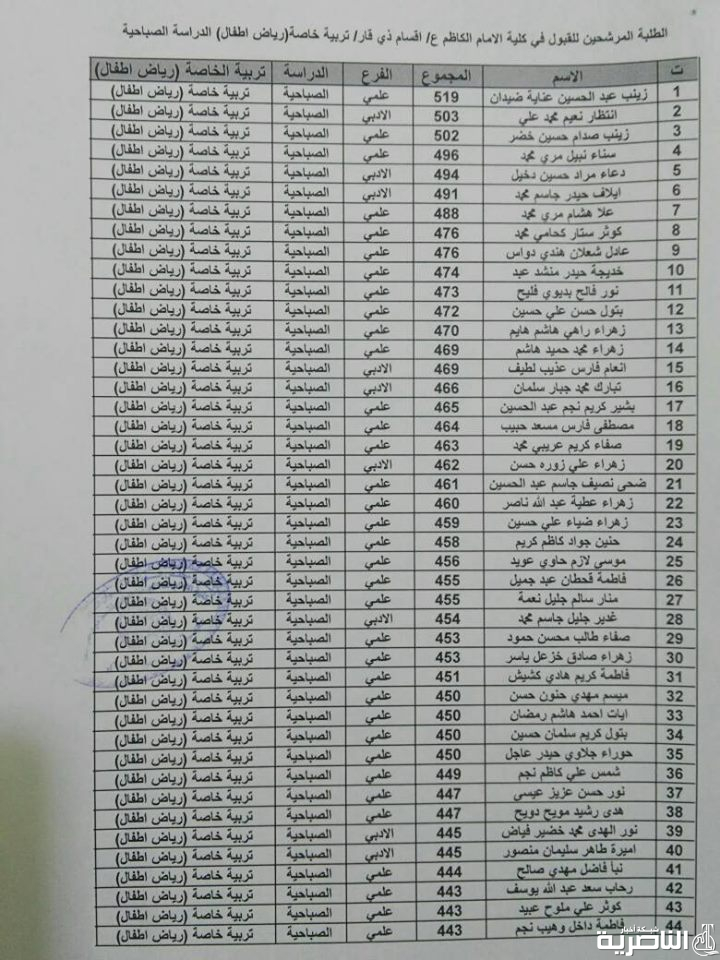 الطلبة المرشحين للقبول في كلية الامام الكاظم ع/ اقسام ذي قار/ تربية خاصة(رياض اطفال) الدراسة الصباحية
ت الاسم المجموع الفرع الدراسة تربية الخاصة (رياض اطفال)
1 زينب عبد الحسين عناية ضيدان 519 علمي الصباحية تربية خاصة (رياض اطفال)
2 انتظار نعيم محمد علي 503 الادبي الصباحية تربية خاصة (رياض اطفال)
3 زينب صدام حسين خضر 502 علمي الصباحية تربية خاصة (رياض اطفال)
4 سناء نبيل مري محمد 496 علمي الصباحية تربية خاصة (رياض اطفال)
5 دعاء مراد حسين دخيل 494 الادبي الصباحية تربية خاصة (رياض اطفال)
6 ايلاف حيدر جاسم محمد 491 الادبي الصباحية تربية خاصة (رياض اطفال)
7 علا هشام مري محمد 488 علمي الصباحية تربية خاصة (رياض اطفال)
8 كوثر ستار كحامي محمد 476 علمي الصباحية تربية خاصة (رياض اطفال)
9 عادل شعلان هندي دواس 476 علمي الصباحية تربية خاصة (رياض اطفال)
10 خديجة حيدر منشد عبد 474 علمي الصباحية تربية خاصة (رياض اطفال)
11 نور فالح بديوي فليح 473 علمي الصباحية تربية خاصة (رياض اطفال)
12 بتول حسن علي حسين 472 علمي الصباحية تربية خاصة (رياض اطفال)
13 زهراء راهي هاشم هايم 470 علمي الصباحية تربية خاصة (رياض اطفال)
14 زهراء محمد حميد هاشم 469 علمي الصباحية تربية خاصة (رياض اطفال)
15 انعام فارس عذيب لطيف 469 الادبي الصباحية تربية خاصة (رياض اطفال)
16 تبارك محمد جبار سلمان 466 الادبي الصباحية تربية خاصة (رياض اطفال)
17 بشير كريم نجم عبد الحسين 465 علمي الصباحية تربية خاصة (رياض اطفال)
18 مصطفى فارس مسعد حبيب 464 علمي الصباحية تربية خاصة (رياض اطفال)
19 صفاء كريم عريبي محمد 463 علمي الصباحية تربية خاصة (رياض اطفال)
20 زهراء علي زوره حسن 462 الادبي الصباحية تربية خاصة (رياض اطفال)
21 ضحى نصيف جاسم عبد الحسين 461 علمي الصباحية تربية خاصة (رياض اطفال)
22 زهراء عطية عبد الله ناصر 460 علمي الصباحية تربية خاصة (رياض اطفال)
23 زهراء ضياء علي حسين 459 علمي الصباحية تربية خاصة (رياض اطفال)
24 حنين جواد كاظم كريم 458 علمي الصباحية تربية خاصة (رياض اطفال)
25 موسى لازم حاوي عويد 456 علمي الصباحية تربية خاصة (رياض اطفال)
26 فاطمة قحطان عبد جميل 455 علمي الصباحية تربية خاصة (رياض اطفال)
27 منار سالم جليل نعمة 455 علمي الصباحية تربية خاصة (رياض اطفال)
28 غدير جليل جاسم محمد 454 الادبي الصباحية تربية خاصة (رياض اطفال)
29 صفاء طالب محسن حمود 453 علمي الصباحية تربية خاصة (رياض اطفال)
30 زهراء صادق خزعل ياسر 453 علمي الصباحية تربية خاصة (رياض اطفال)
31 فاطمة كريم هادي كشيش 451 علمي الصباحية تربية خاصة (رياض اطفال)
32 ميسم مهدي حنون حسن 450 علمي الصباحية تربية خاصة (رياض اطفال)
33 ايات احمد هاشم رمضان 450 علمي الصباحية تربية خاصة (رياض اطفال)
34 بتول كريم سلمان حسين 450 علمي الصباحية تربية خاصة (رياض اطفال)
35 حوراء جلاوي حيدر عاجل 450 علمي الصباحية تربية خاصة (رياض اطفال)
36 شمس علي كاظم نجم 449 علمي الصباحية تربية خاصة (رياض اطفال)
37 نور حسن عزيز عيسى 447 علمي الصباحية تربية خاصة (رياض اطفال)
38 هدى رشيد مويح دويح 447 علمي الصباحية تربية خاصة (رياض اطفال)
39 نور الهدى محمد خضير فياض 445 الادبي الصباحية تربية خاصة (رياض اطفال)
40 اميرة طاهر سليمان منصور 445 الادبي الصباحية تربية خاصة (رياض اطفال)
41 نبأ فاضل مهدي صالح 444 علمي الصباحية تربية خاصة (رياض اطفال)
42 رحاب سعد عبد الله يوسف 443 علمي الصباحية تربية خاصة (رياض اطفال)
43 كوثر علي ملوح عبيد 443 علمي الصباحية تربية خاصة (رياض اطفال)
44 فاطمة داخل وهيب نجم 443 علمي الصباحية تربية خاصة (رياض اطفال)
شبكة أخبار
الناصرية